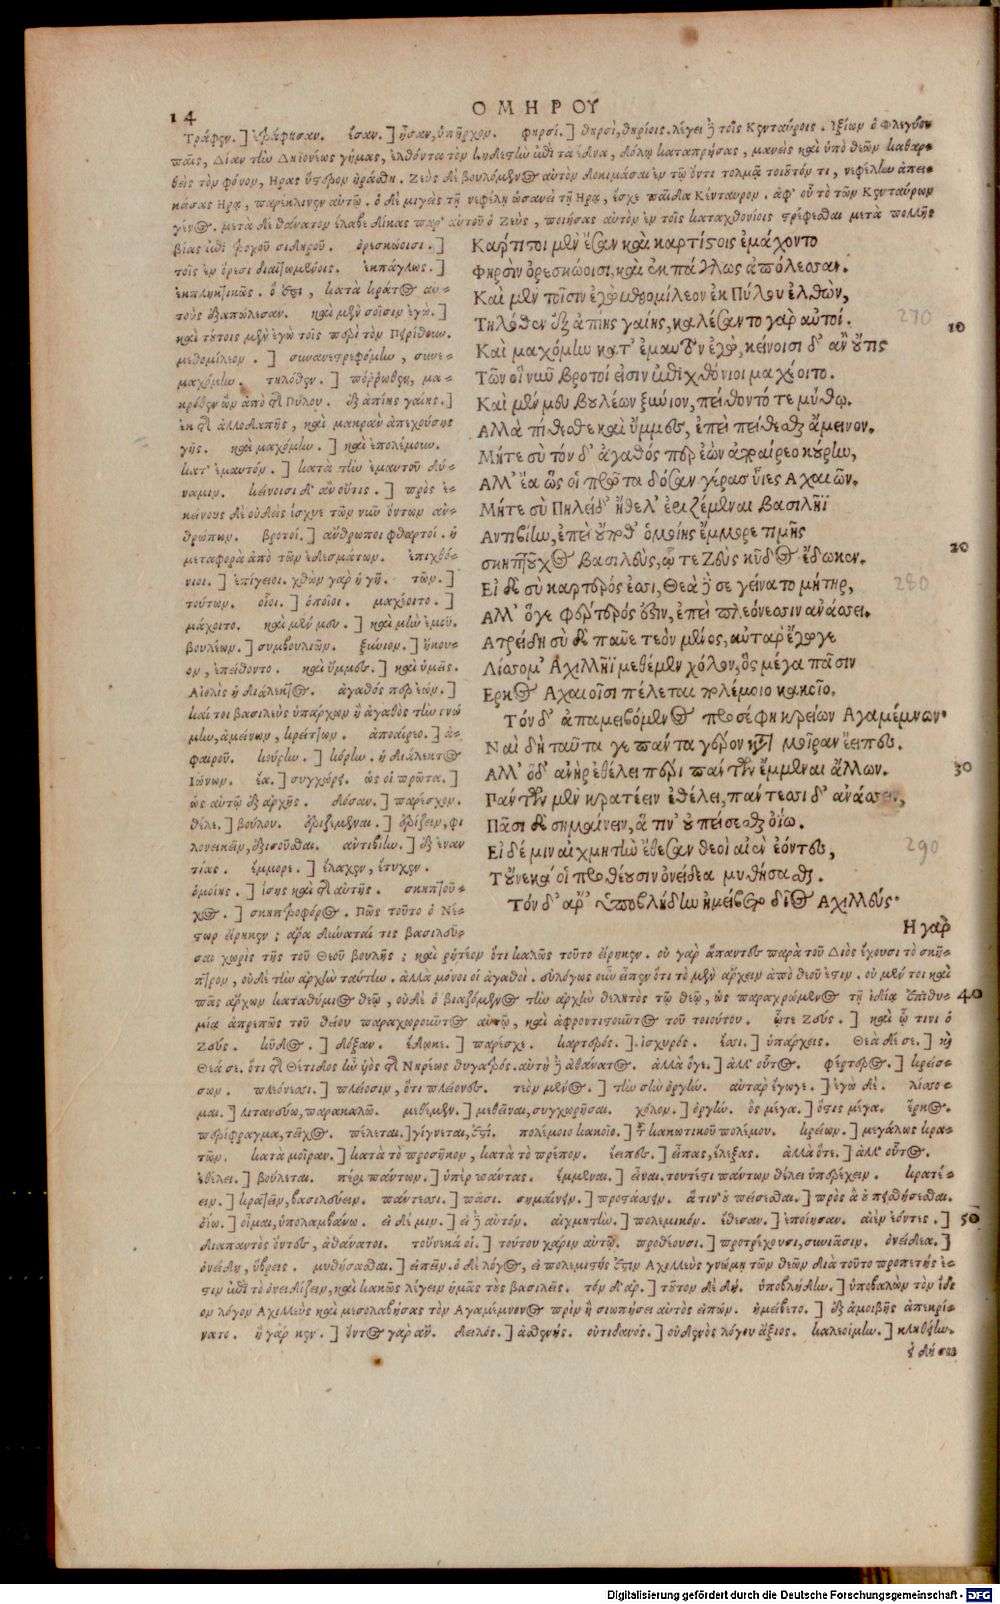 14 ΟΜΗΡΟΥ
Τράφεν.] ἐτράφησαν. ἔσαν.] ἦσαν, ὑπῆρχον. φηρσί.] θηρσὶ, θηρίοις. λέγει δὲ τοῖς Κενταύροις. Ιξίων ὁ Φλεγύου
παῖς, Δίαν τὴν Δηϊονέως γήμας, ἐλθόντα τὸν κηδεστὴν ἐπὶ τὰ ἕδνα, δόλῳ καταπρήσας, μανεὶς καὶ ὑπὸ θεῶν καθαρ-
θεὶς τὸν φόνον, Ηρας ὕστερον ἠράσθη. Ζεὺς δὲ βουλόμενος αὐτὸν δοκιμάσαι ἐν τῷ ὄντι τολμᾷ τοιοῦτόν τι, νεφέλην ἀπει-
κάσας Ηρᾳ, παρέκλινεν αὐτῷ. ὁ δὲ μιγεὶς τῇ νεφέλῃ ὡσανεὶ τῇ Ηρᾳ, ἔσχε παῖδα Κένταυρον. ἀφ' οὗ τὸ τῶν Κενταύρων
γένος. μετὰ δὲ θάνατον ἔλαβε δίκας παρ' αὐτοῦ ὁ Ζεὺς, ποιήσας αὐτὸν ἐν τοῖς καταχθονίοις τρέφεσθαι μετὰ πολλῆς
βίας ἐπὶ τροχοῦ σιδηροῦ. ὀρεσκώοισι.]
τοῖς ἐν ὄρεσι διαιζωμένοις. ἐκπάγλως.]
ἐκπληκτικῶς. ὅ ἐστι, κατὰ κράτος αὐ-
τοὺς ἐξαπώλεσαν. καὶ μὲν τοῖσιν ἐγώ.]
καὶ τούτοις μὲν ἐγὼ τοῖς περὶ τὸν Πειρίθουν.
μεθομίλεον.] συνανεστρεφόμην, συνε-
μαχόμην. τηλόθεν.] πόρρωθεν, μα-
κρόθεν ὢν ἀπὸ τῆς Πύλου. ἐξ ἀπίης γαίης.]
ἐκ τῆς ἀλλοδαπῆς, καὶ μακρὰν ἀπεχούσης
γῆς. καὶ μαχόμην.] καὶ ἐπολέμουν.
κατ' ἐμαυτόν.] κατὰ τὴν ἐμαυτοῦ δύ-
ναμιν. κείνοισι δ' ἂν οὔτις.] πρὸς ἐ-
κείνους δὲ οὐδεὶς ἴσχυε τῶν νῦν ὄντων ἀν-
θρώπων. βροτοί.] ἄνθρωποι φθαρτοί. ἡ
μεταφορὰ ἀπὸ τῶν ἐδεσμάτων. ἐπιχθό-
νιοι.] ἐπίγειοι. χθὼν γὰρ ἡ γῆ. τῶν.]
τούτων. οἷοι.] ὁποῖοι. μαχέοιτο.]
μάχοιτο. καὶ μέν μου.] καὶ μὴν ἐμοῦ.
βουλέων.] συμβουλιῶν. ξύνιον.] ἤκου-
ον, ἐπείθοντο. καὶ ὔμμες.] καὶ ὑμεῖς.
Αἰολὶς ἡ διάλεκτος. ἀγαθός περ ἐών.]
καί τοι βασιλεὺς ὑπάρχων ἢ ἀγαθὸς τὴν γνώ
μην, ἀμείνων, κρείττων. ἀποαίρεο.] ἀ-
φαιροῦ. κούρην.] κόρην. ἡ διάλεκτος
Ιώνων. ἔα.] συγχώρει. ὡς οἱ πρῶτα.]
ὡς αὐτῷ ἐξ ἀρχῆς. δόσαν.] παρέσχον.
θέλε.] βούλου. ἐριζέμεναι.] ἐρίζειν, φι
λονεικεῖν, ἐξισοῦσθαι. αὐτιβίην.] ἐξ ἐναν
τίας. ἔμμορε.] ἔλαχεν, ἔτυχεν.
ὁμοίης.] ἴσης καὶ τῆς αὐτῆς. σκηπτοῦ-
χος.] σκηπτροφόρος. Πῶς τοῦτο ὁ Νέ-
στωρ εἴρηκεν; ἆρα δύναταί τις βασιλεῦ-
Κάρτιστοι μὲν ἔσαν καὶ καρτίστοις ἐμάχοντο
Φηρσὶν ὀρεσκώοισι, καὶ ἐκπάγλως ἀπόλεσσαν.
Καὶ μὲν τοῖσιν ἐγὼ μεθομίλεον ἐκ Πύλου ἐλθὼν,
Τηλόθεν ἐξ ἀπίης γαίης, καλέσαντο γὰρ αὐτοί. 270 10
Καὶ μαχόμην κατ' ἐμαυτὸν ἐγὼ, κείνοισι δ' ἂν οὔτις
Τῶν οἳ νῦν βροτοί εἰσιν ἐπιχθόνιοι μαχέοιτο.
Καὶ μέν μευ βουλέων ξύνιον, πείθοντό τε μύθῳ.
Αλλὰ πίθεσθε καὶ ὔμμες, ἐπεὶ πείθεσθαι ἄμεινον.
Μήτε σὺ τόνδ' ἀγαθός περ ἐὼν ἀποαίρεο κούρην,
Αλλ' ἔα ὥς οἱ πρῶτα δόσαν γέρας υἷες Αχαιῶν.
Μήτε σὺ Πηλείδ' ἤθελ' ἐριζέμεναι βασιλῆϊ
Αντιβίην, ἐπεὶ οὔποθ' ὁμοίης ἔμμορε τιμῆς
σκηπτοῦχος βασιλεὺς, ᾧ τε Ζεὺς κῦδος ἔδωκεν. 20
Εἰ δὲ σὺ καρτερός ἐσσι, Θεὰ δέ σε γείνατο μήτηρ, 280
Αλλ' ὅγε φέρτερός ἐστιν, ἐπεὶ πλεόνεσσιν ἀνάσσει.
Ατρείδη σὺ δὲ παῦε τεὸν μένος, αὐτὰρ ἔγωγε
Λίσσομ' Αχιλλῆϊ μεθέμεν χόλον, ὃς μέγα πᾶσιν
Ερκος Αχαιοῖσι πέλεται πολέμοιο κακοῖο.
Τὸν δ' ἀπαμειβόμενος προσέφη κρείων Αγαμέμνων·
Ναὶ δὴ ταῦτα γε πάντα γέρον κατὰ μοῖραν ἔειπες.
Αλλ' ὅδ' ἀνὴρ ἐθέλει περὶ πάντων ἔμμεναι ἄλλων. 30
Πάντων μὲν κρατέειν ἐθέλει, πάντεσσι δ' ἀνάσσειν,
Πᾶσι δὲ σημαίνειν, ἅ τιν' οὐ πείσεσθαι ὀΐω.
Εἰ δέ μιν αἰχμητὴν ἔθεσαν θεοὶ αἰὲν ἐόντες, 290
Τούνεκά οἱ προθέουσιν ὀνείδεα μυθήσασθαι.
Τὸν δ' ἄρ' ὑποβλήδην ἠμείβετο δῖος Αχιλλεύς·
Η γὰρ
σαι χωρὶς τῆς τοῦ Θεοῦ βουλῆς; καὶ ῥητέον ὅτι καλῶς τοῦτο εἴρηκεν. οὐ γὰρ ἅπαντες παρὰ τοῦ Διὸς ἔχουσι τὸ σκῆ-
πτρον, οὐδὲ τὴν ἀρχὴν ταύτην. ἀλλὰ μόνοι οἱ ἀγαθοί. εὐλόγως οὖν εἶπεν ὅτι τὸ μὲν ἄρχειν ἀπὸ θεοῦ ἐστιν. οὐ μέν τοι καὶ
πᾶς ἄρχων καταθύμιος θεῷ, οὐδὲ ὁ βιαζόμενος τὴν ἀρχὴν θελητὸς τῷ θεῷ, ὡς παραχρώμενος τῇ ἰδίᾳ ἐπιθυ- 40
μίᾳ ἀπρεπῶς τοῦ θείου παραχωροῦντος αὐτῷ, καὶ ἀφροντιστοῦντος τοῦ τοιούτου. ᾧτε Ζεύς.] καὶ ᾧ τινι ὁ
Ζεύς. κῦδος.] δόξαν. ἔδωκε.] παρέσχε. καρτερός.] ἰσχυρός. ἐσσι.] ὑπάρχεις. Θεὰ δέ σε.] καὶ
Θεά σε. ὅτι τῆς Θέτιδος ἦν υἱὸς τῆς Νηρέως θυγατρός. αὐτὴ δὲ ἀθάνατος. ἀλλὰ ὅγε.] ἀλλ' οὗτος. φέρτερος.] κρείσ-
σων. πλεόνεσσι.] πλείοσιν, ὅτι πλείονες. τεὸν μένος.] τὴν σὴν ὀργήν. αὐτὰρ ἔγωγε.] ἐγὼ δὲ. λίσσο-
μαι.] λιτανεύω, παρακαλῶ. μεθέμεν.] μεθεῖναι, συγχωρῆσαι. χόλον.] ὀργήν. ὃς μέγα.] ὅστις μέγα. ἕρκος.]
περίφραγμα, τεῖχος. πέλεται.] γίγνεται, ἐστί. πολέμοιο κακοῖο.] τοῦ κακωτικοῦ πολέμου. κρείων.] μεγάλως κρα-
τῶν. κατὰ μοῖραν.] κατὰ τὸ προσῆκον, κατὰ τὸ πρέπον. ἔειπες.] εἶπας, ἔλεξας. ἀλλὰ ὅτε.] ἀλλ' οὗτος.
ἐθέλει.] βούλεται. πέρι πάντων.] ὑπὲρ πάντας. ἔμμεναι.] εἶναι. τουτέστι πάντων θέλει ὑπερέχειν. κρατέ-
ειν.] κρατεῖν, βασιλεύειν. πάντεσσι.] πᾶσι. σημαίνειν.] προστάσσειν. ἅ τιν' οὐ πείσεσθαι.] πρὸς ἃ οὐ πεισθήσεσθαι.
ὀΐω.] οἶμαι, ὑπολαμβάνω. εἰ δέ μιν.] εἰ δὲ αὐτόν. αἰχμητήν.] πολεμικόν. ἔθεσαν.] ἐποίησαν. αἰὲν ἐόντες.] 50
διαπαντὸς ὄντες, ἀθάνατοι. τοὔνεκά οἱ.] τούτου χάριν αὐτῷ. προθέουσι.] προτρέχουσι, συνιᾶσιν. ὀνείδεα.]
ὀνείδη, ὕβρεις. μυθήσασθαι.] εἰπεῖν. ὁ δὲ λόγος, εἰ πολεμιστής ἐστιν Αχιλλεὺς γνώμῃ τῶν θεῶν διὰ τοῦτο προπετής ἐ-
στιν ἐπὶ τὸ ὀνειδίζειν, καὶ κακῶς λέγειν ἡμᾶς τοὺς βασιλεῖς. τὸν δ' ἄρ.] τοῦτον δὲ δή. ὑποβλήδην.] ὑποβαλὼν τὸν ἴδι
ον λόγον Αχιλλεὺς καὶ μεσολαβήσας τὸν Αγαμέμνονος πρὶν ἢ σιωπῆσαι αὐτὸς εἰπών. ἠμείβετο.] ἐξ ἀμοιβῆς ἀπεκρί-
νατο. ἦ γάρ κεν.] ὄντως γὰρ ἄν. δειλός.] ἀσθενής. οὐτιδανός.] οὐδενὸς λόγου ἄξιος. καλεοίμην.] κληθείην.
εἰ δή σοι
Digitalisierung gefördert durch die Deutsche Forschungsgemeinschaft - DFG